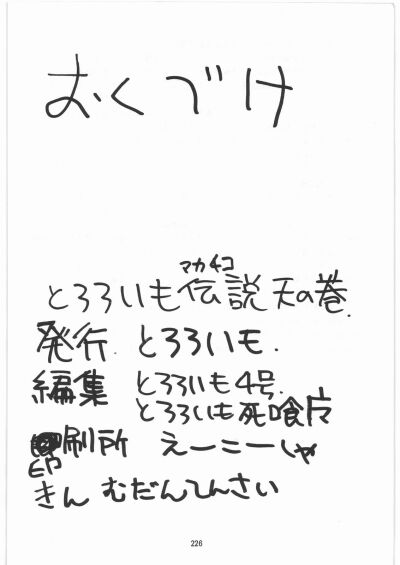 おくづけ
マカチコ
とろろいも伝説 天の巻.
発行. とろろいも.
編集 とろろいも4号.
とろろいも死喰片
印刷所 えーこーしゃ
きん むだんてんさい
226